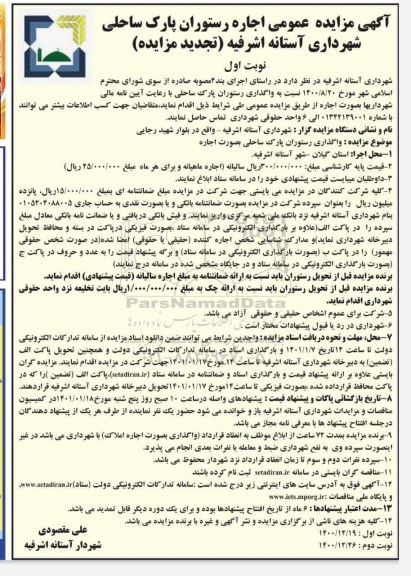 آگهی مزایده عمومی اجاره رستوران پارک ساحلی
شهرداری آستانه اشرفیه (تجدید مزایده)
نوبت اول
شهرداری آستانه اشرفیه در نظر دارد در راستای اجرای بند۴مصوبه صادره از سوی شورای محترم
اسلامی شهر مورخ ۱۴۰۰/۸/۲۰ نسبت به واگذاری رستوران پارک ساحلی با رعایت آیین نامه مالی
شهرداریها بصورت اجاره از طریق مزایده عمومی طی شرایط ذیل اقدام نماید،متقاضیان جهت کسب اطلاعات بیشتر می توانند
با شماره ۰۱۳۴۲۱۳۹۰۰۱ الی ۶ واحد حقوقی شهرداری تماس حاصل نمایند.
نام و نشانی دستگاه مزایده گزار : شهرداری آستانه اشرفیه – واقع در بلوار شهید رجایی
موضوع مزایده : واگذاری رستوران پارک ساحلی بصورت اجاره
۱-محل اجرا: استان گیلان –شهر آستانه اشرفیه.
۲-قیمت پایه کارشناسی مبلغ: ۳۰۰/۰۰۰/۰۰۰ریال سالیانه (اجاره ماهیانه و برای هر ماه مبلغ ۲۵/۰۰۰/۰۰۰ ریال)
۳-داوطلبان میبایست قیمت پیشنهادی خود را در سامانه ستاد ابلاغ نمایند.
۴-کلیه شرکت کنندگان در مزایده می بایستی جهت شرکت در مزایده مبلغ ضمانتنامه ای بمبلغ ۱۵/۰۰۰/۰۰۰ریال، پانزده
میلیون ریال را بعنوان سپرده شرکت در مزایده بصورت ضمانتنامه بانکی و یا بصورت نقدی به حساب جاری ۰۱۰۵۲۰۴۰۸۸۰۰۵
بنام شهرداری آستانه اشرفیه نزد بانک ملی شعبه مرکزی واریز نمایند. و فیش بانکی دریافتی و یا ضمانت نامه بانکی معادل مبلغ
سپرده را در پاکت الف(علاوه بر بارگذاری الکترونیکی در سامانه ستاد ،بصورت فیزیکی درپاکت در بسته و محافظ تحویل
دبیرخانه شهرداری نماید)و مدارک شناسایی شخص اجاره کننده (حقیقی یا حقوقی) امضا شده(در صورت شخص حقوقی
مهمور) را در پاکت ب (بصورت بارگذاری الکترونیکی در سامانه ستاد) و برگه پیشنهاد قیمت را به عدد و حروف در پاکت ج
(بصورت بارگذاری الکترونیکی در سامانه ستاد و در جایگاه مشخص شده در سامانه درج نمایند)
برنده مزایده قبل از تحویل رستوران باید نسبت به ارائه ضمانتنامه به مبلغ اجاره سالیانه (قیمت پیشنهادی) اقدام نماید.
برنده مزایده قبل از تحویل رستوران باید نسبت به ارائه چک به مبلغ ۱/۰۰۰/۰۰۰/۰۰۰ریال بابت تخلیه نزد واحد حقوقی
شهرداری اقدام نماید.
۵-شرکت برای عموم اشخاص حقیقی و حقوقی آزاد می باشد.
۶-شهرداری در رد یا قبول پیشنهادات مختار است .
۷-محل، مهلت و نحوه دریافت اسناد مزایده: واجدین شرایط می توانند ضمن دانلود اسناد مزایده از سامانه تدارکات الکترونیکی
دولت تا ساعت ۱۴تاریخ ۱۴۰۱/۱/۱۷ و بارگذاری اسناد در سامانه تدارکات الکترونیکی دولت و همچنین تحویل پاکت الف
(تضمین) به دبیرخانه شهرداری آستانه اشرفیه تا ساعت ۱۴ مورخ ۱۴۰۱/۰۱/۱۷جهت شرکت در مزایده اقدام نمایند. مزایده گران
بایستی علاوه بر ارائه پیشنهاد قیمت و بارگذاری اسناد و ضمانتنامه در سامانه ستاد (setadiran.ir)،پاکت الف (تضمین )را که در
پاکت محافظ قرارداده شده ،بصورت فیزیکی تا ساعت۱۴مورخ ۱۴۰۱/۰۱/۱۷تحویل دبیرخانه شهرداری آستانه اشرفیه قراردهند.
۸-تاریخ بازگشائی پاکات و پیشنهاد قیمت : پیشنهادهای واصله درساعت ۱۰ صبح روز پنج شنبه مورخ۱۴۰۱/۰۱/۱۸در کمیسیون
مناقصات و مزایدات شهرداری آستانه اشرفیه باز و خوانده می شود حضور یک نفر نماینده از طرف هر یک از پیشنهاد دهندگان
درجلسه افتتاح پیشنهاد ها با معرفی نامه مجاز می باشد.
۹-برنده مزایده بمدت ۷۲ ساعت از ابلاغ موظف به انعقاد قرارداد (واگذاری بصورت اجاره املاک) با شهرداری می باشد در غیر
اینصورت سپرده وی به نفع شهرداری ضبط و معامله با نفرات بعدی انجام می پذیرد.
۱۰-سپرده نفرات دوم و سوم تا زمان انعقاد قرارداد نزد شهردار محفوظ می باشد.
۱۱-مناقصه گران بایستی در سامانه setadiran.ir ثبت نام کرده باشند
۱۲-آگهی فوق به آدرس سایت های اینترنتی زیر درج شده است :سامانه تدارکات الکترونیکی دولت (ستاد)www.setadiran.ir
و پایگاه ملی مناقصات :www.iets.mporg.ir
۱۳-مدت اعتبار پیشنهادها : ۶ ماه از تاریخ افتتاح پیشنهادها بوده و برای یک دوره دیگر قابل تمدید می باشد.
۱۴-کلیه هزینه های ناشی از برگزاری مزایده و نشر آگهی و غیره با برنده مزایده می باشد.
نوبت اول : ۱۴۰۰/۱۲/۱۹
نوبت دوم : ۱۴۰۰/۱۲/۲۶
علی مقصودی
شهردار آستانه اشرفیه
ParsNamadData